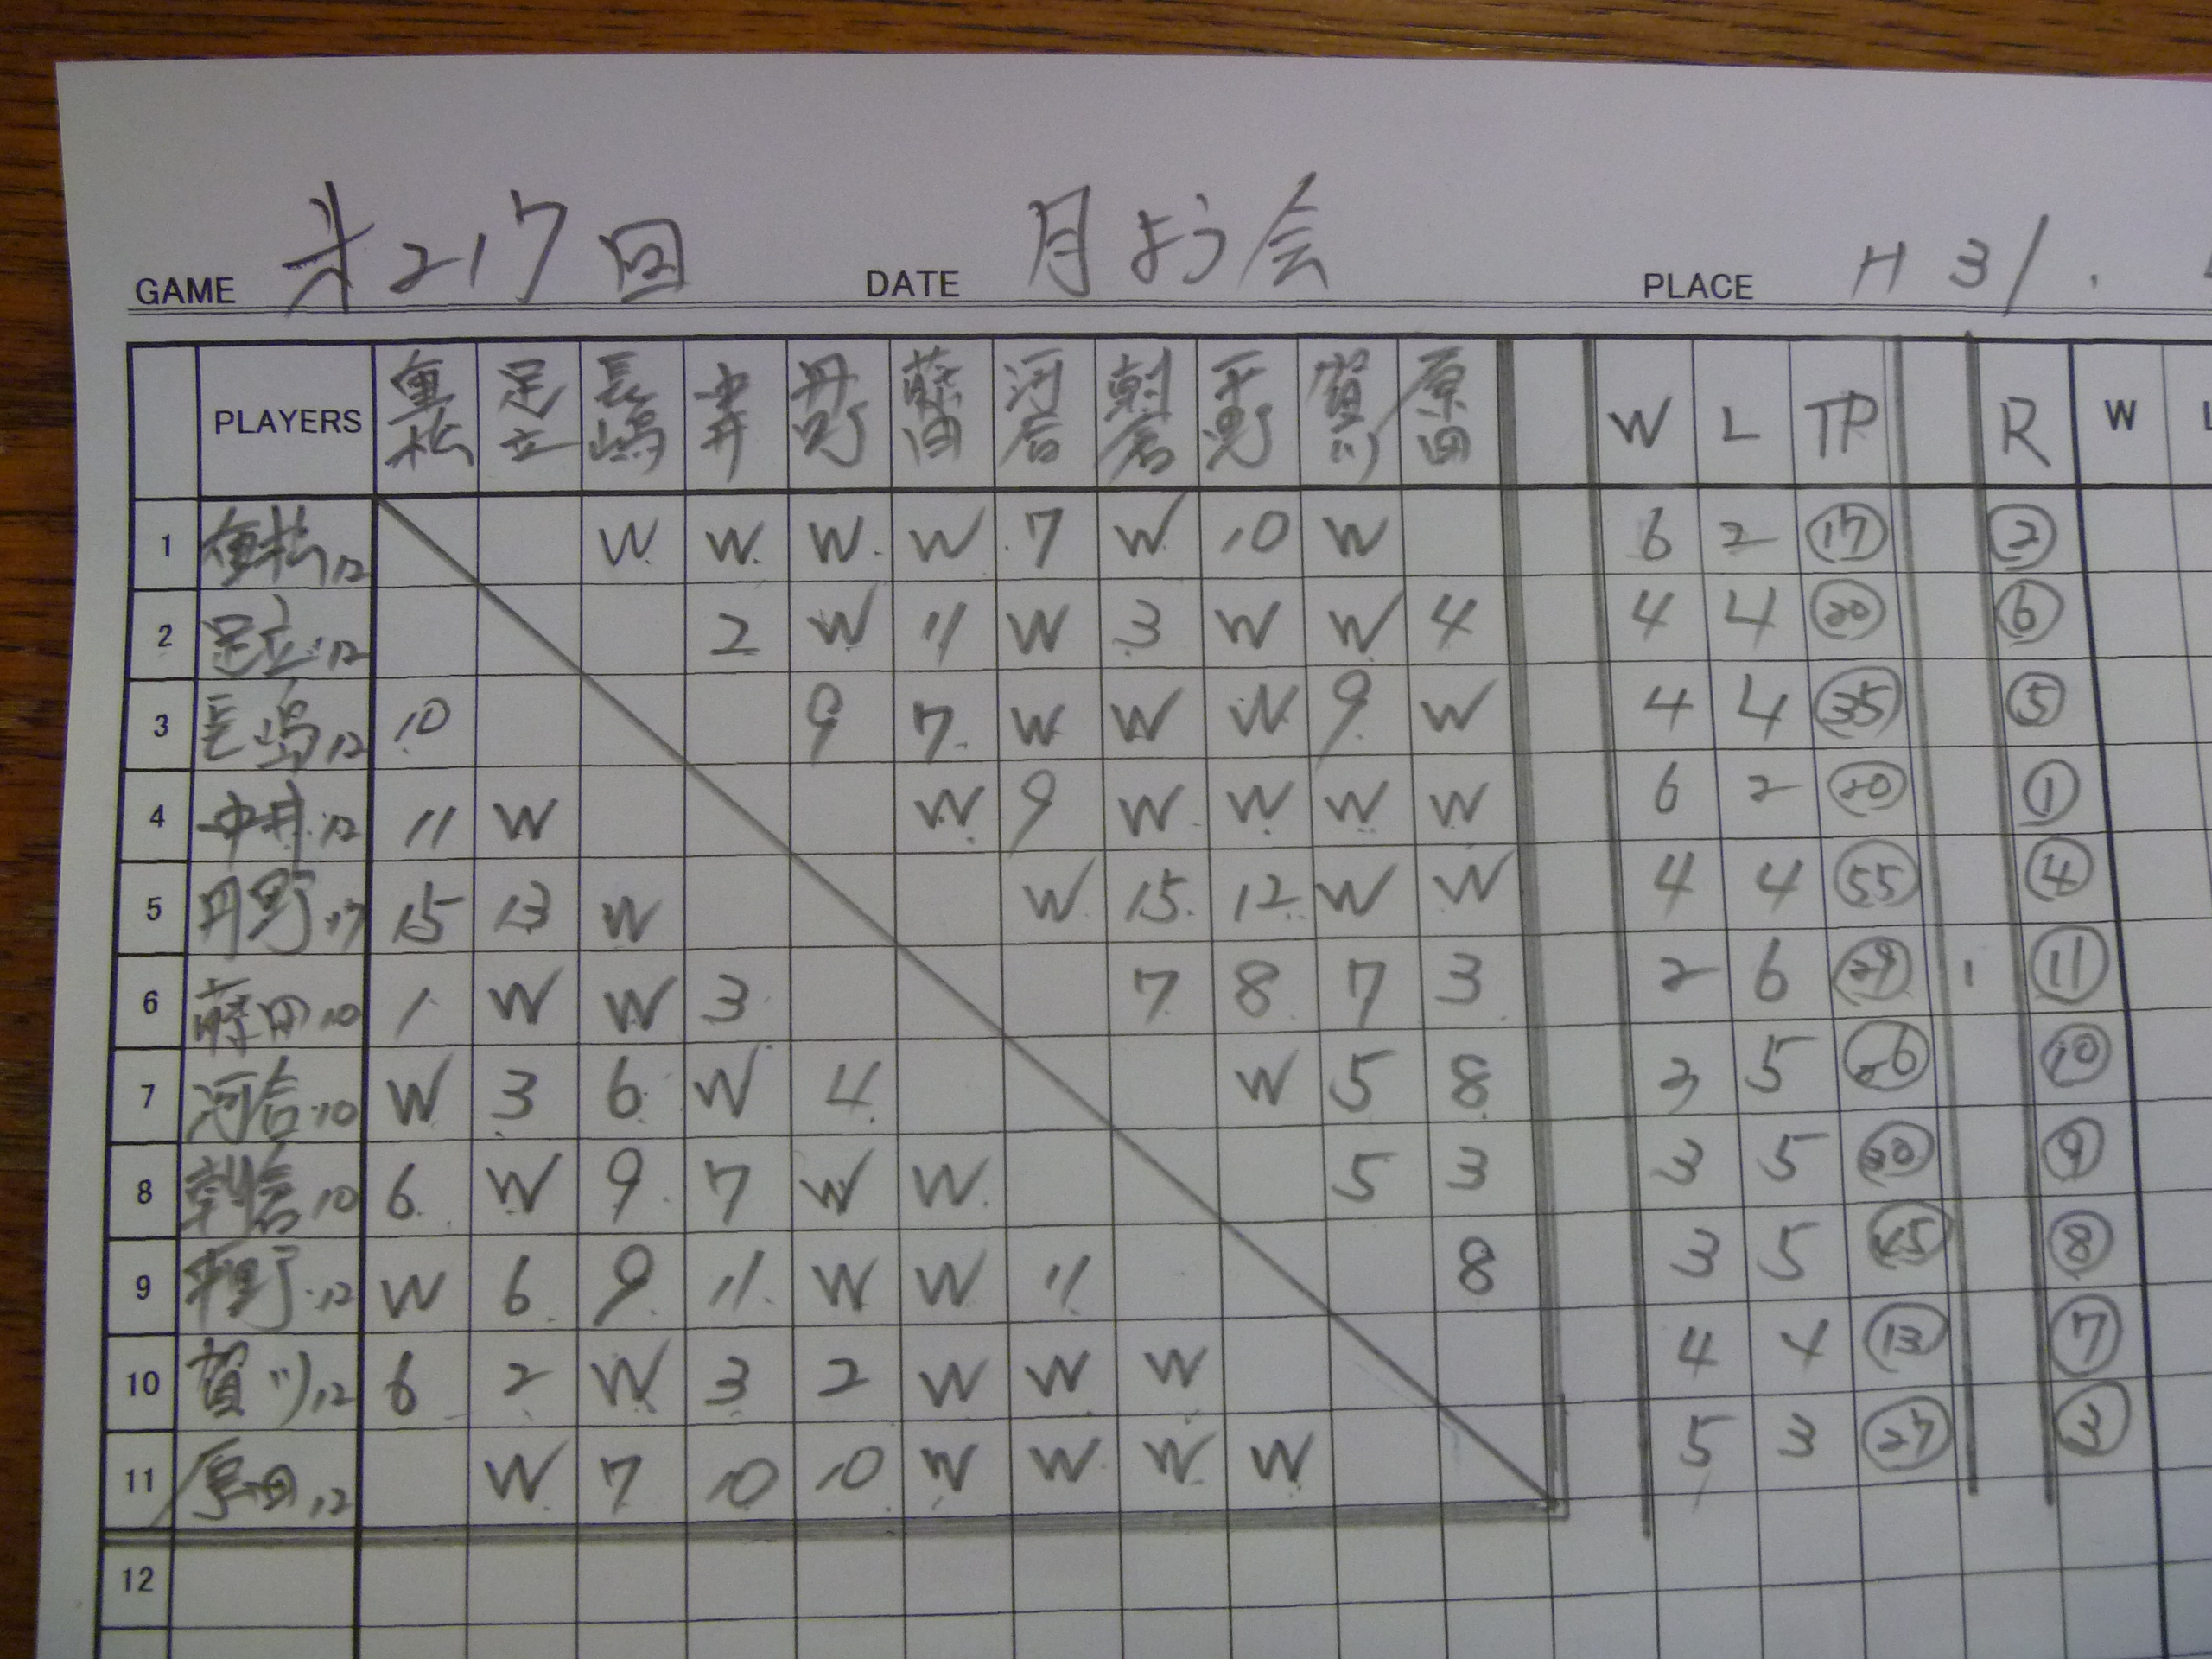 GAME 第217回 DATE 月よう会 PLACE H 31.
PLAYERS 重松 足立 長嶋 中井 丹野 藤田 河合 朝倉 平野 賀川 原田 W L TP R W L
1 重松 12 W W W W 7 W 10 W 6 2 17 2
2 足立 12 2 W 11 W 3 W W 4 4 4 20 6
3 長嶋 12 10 9 7 W W W 9 W 4 4 35 5
4 中井 12 11 W W 9 W W W W 6 2 20 1
5 丹野 17 15 13 W W 15 12 W W 4 4 55 4
6 藤田 10 1 W W 3 7 8 7 3 2 6 29 1 11
7 10 W 3 6 W 4 W 5 8 3 5 26 10
8 10 6 W 9 7 W W 5 3 3 5 30 9
9 平野 12 W 6 9 11 W W 11 8 3 5 45 8
10 賀川 12 6 2 W 3 2 W W W 4 4 13 7
11 原田 12 W 7 10 10 W W W W 5 3 27 3
12